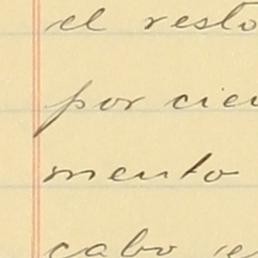 el resto
por cien
mento
cabo